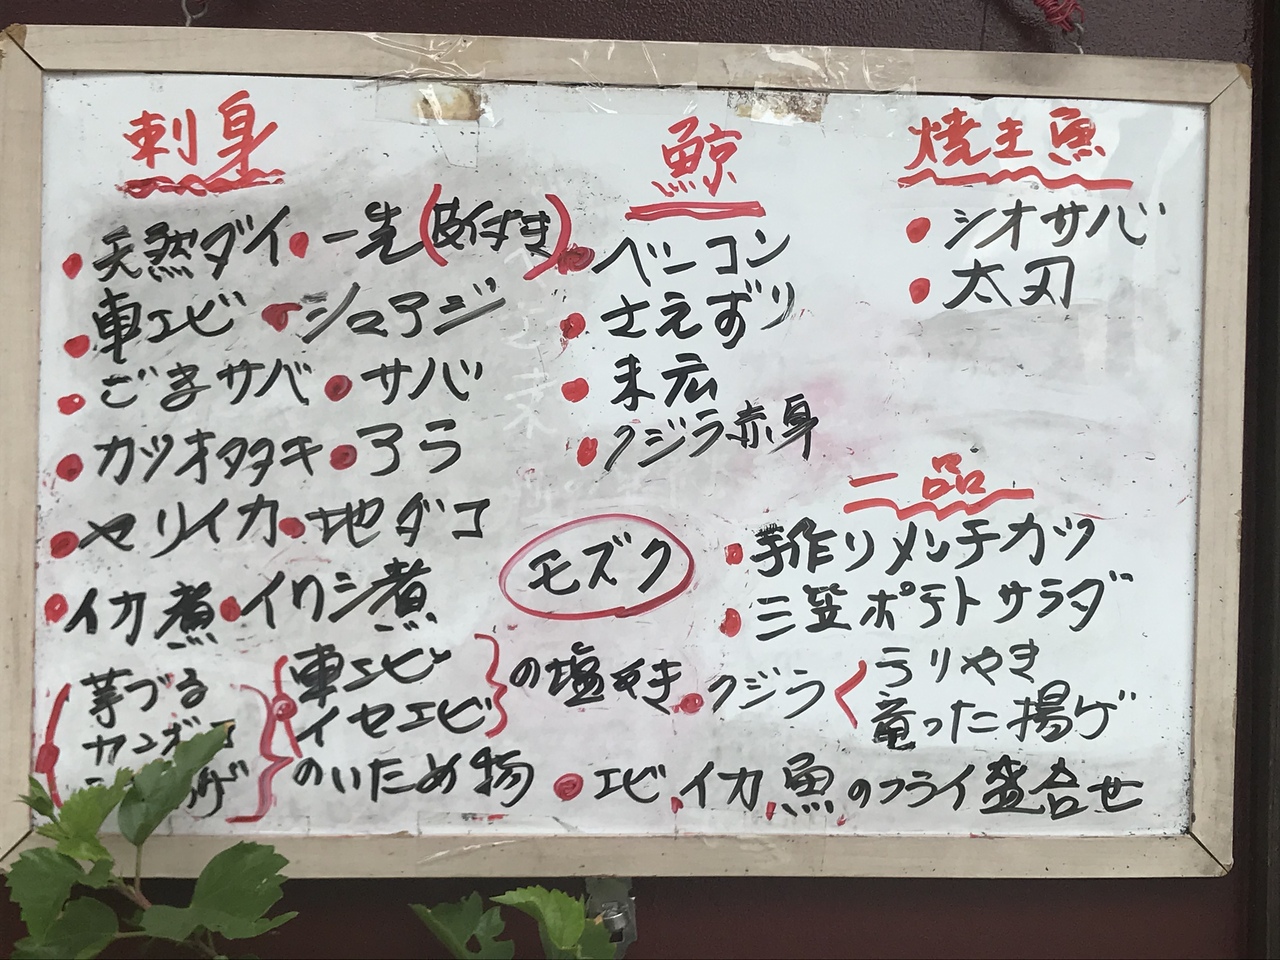 刺身
・天然ダイ・一先(皮付き)
・車エビ・シマアジ
・ごまサバ・サバ
・カツオタタキ・アラ
・ヤリイカ・地ダコ
・イカ煮・イワシ煮
芋づる
・車エビ
イセエビ
の塩やき
のいため物
鯨
・ベーコン
・さえずり
・末広
・クジラ赤身
モズク
焼き魚
・シオサバ
・太刃
一品
・手作りメンチカツ
・三笠ポテトサラダ
・クジラ
うりやき
竜った揚ゲ
・エビ,イカ,魚のフライ盛合せ